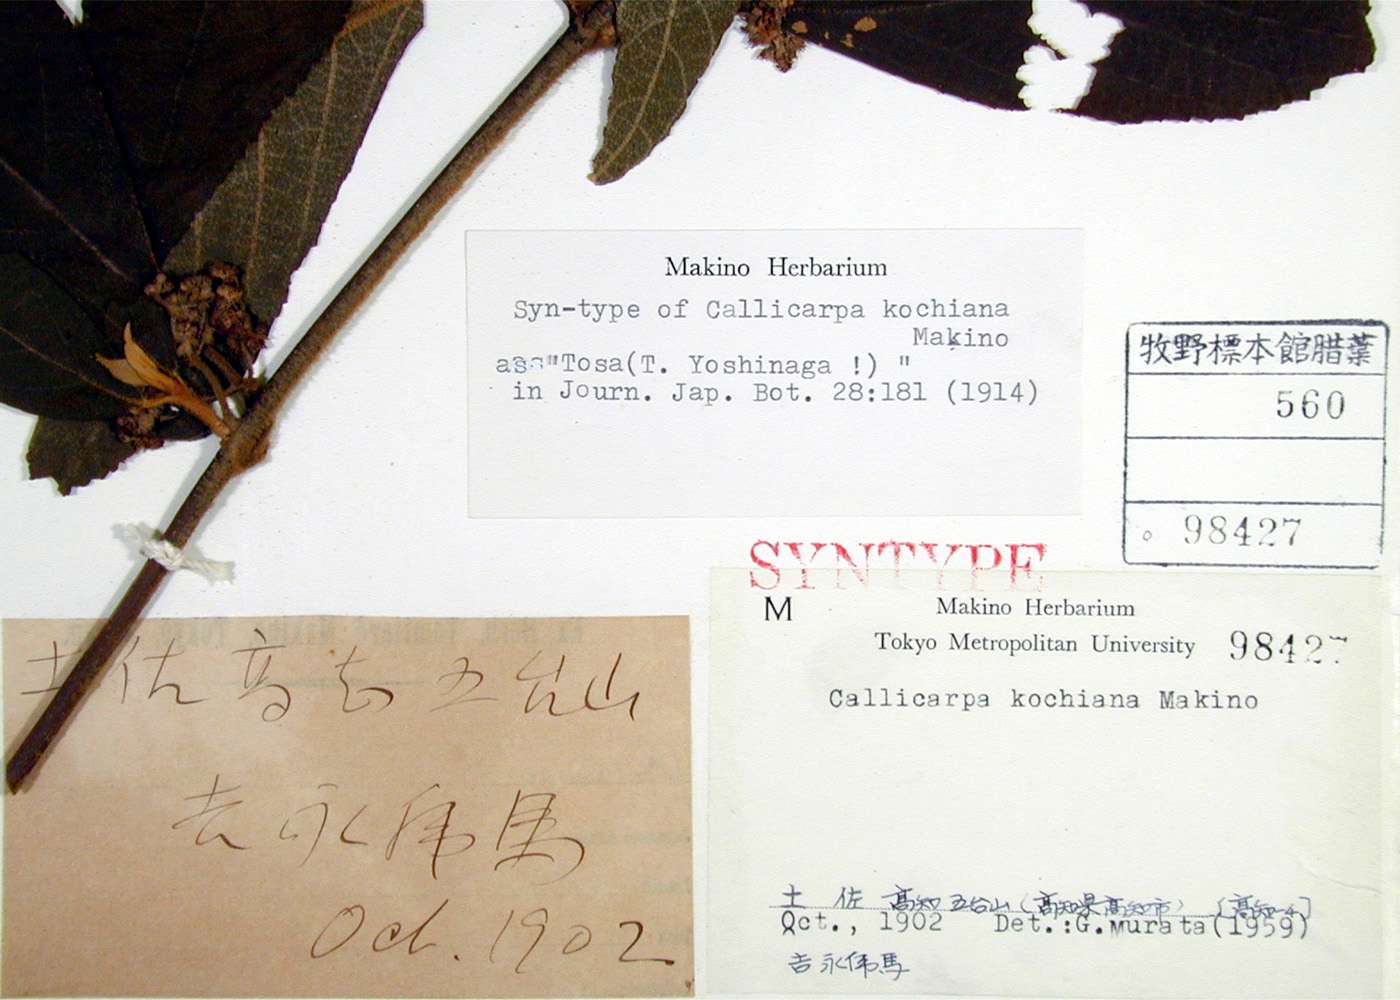 Makino Herbarium
Syn-type of Callicarpa kochiana
Makino
as "Tosa(T. Yoshinaga !) "
in Journ. Jap. Bot. 28:181 (1914)
牧野標本館腊葉
560
98427
SYNTYPE
M
Makino Herbarium
Tokyo Metropolitan University 98427
Callicarpa kochiana Makino
土佐 高知 五台山(高知県高知市)
Oct., 1902 Det.:G.Murata(1959)
吉永虎馬
土佐高知五台山
吉永虎馬
Oct. 1902